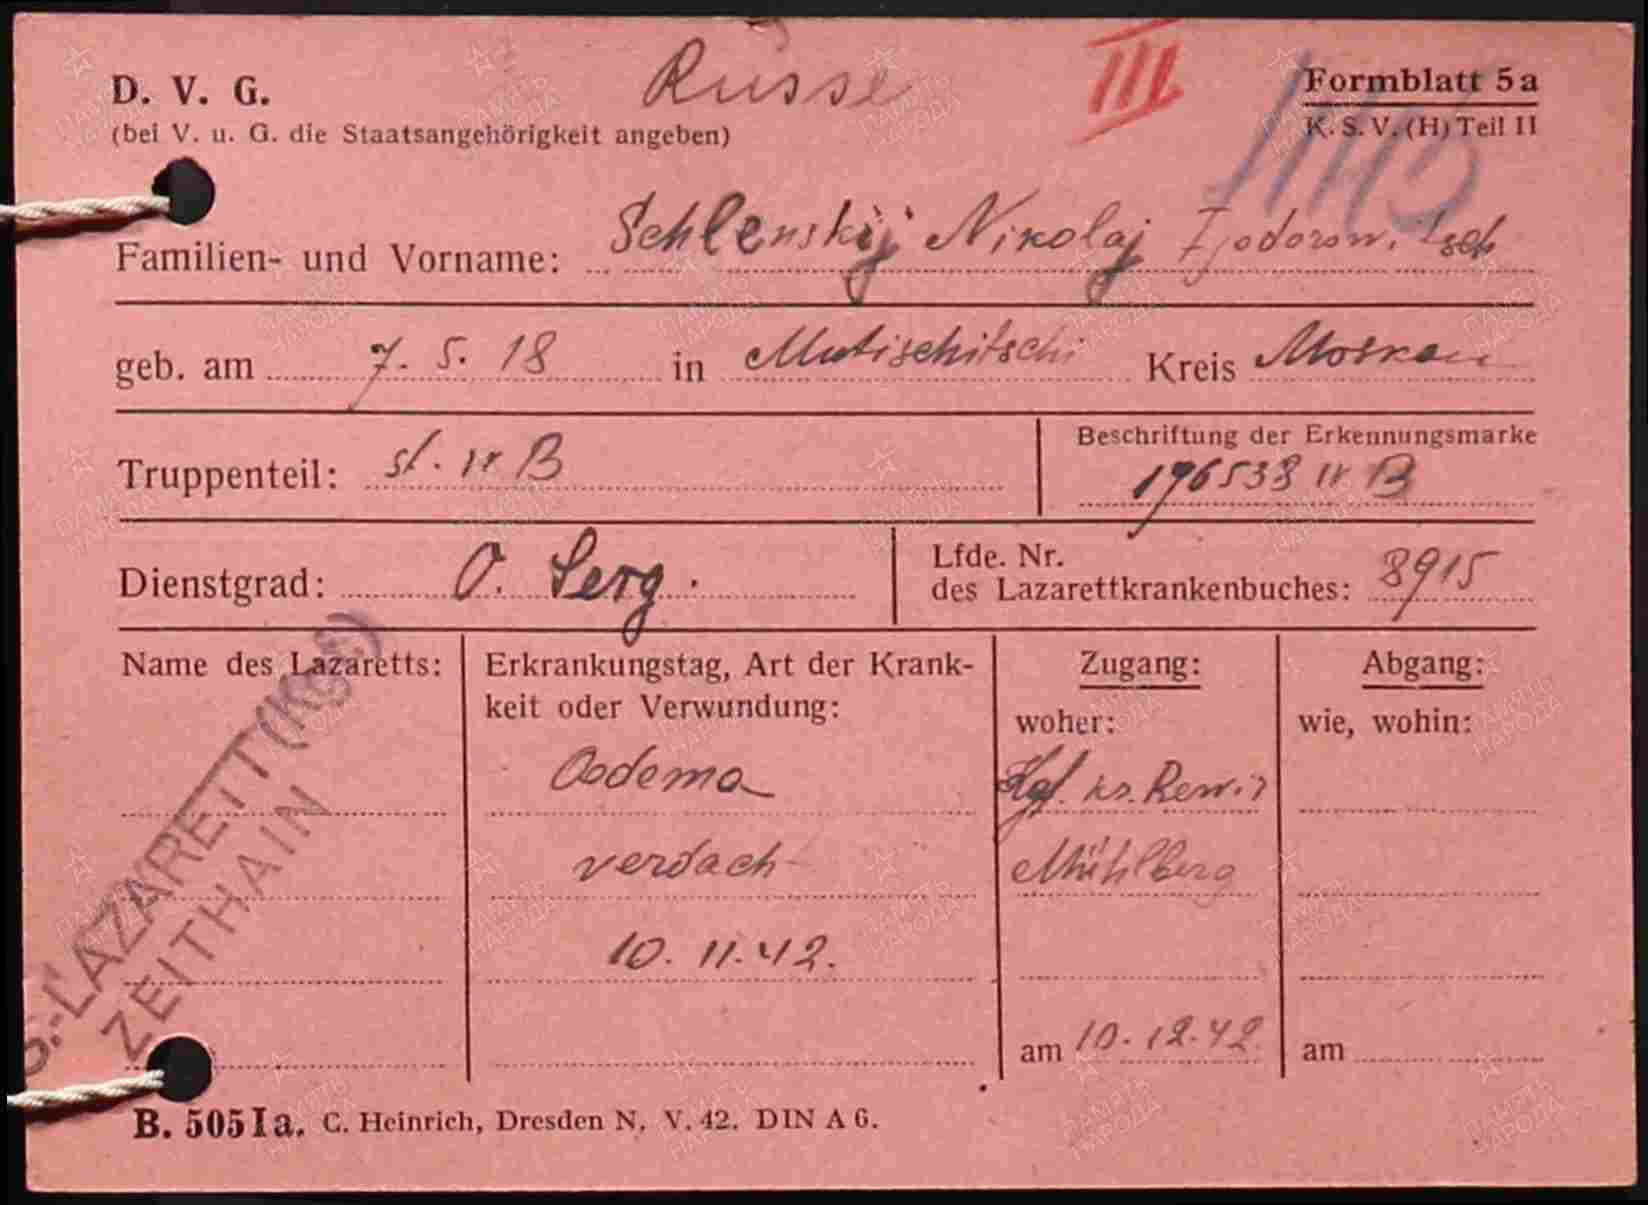 Russe III
D. V. G. Formblatt 5a
(bei V. u. G. die Staatsangehörigkeit angeben) K. S. V. (H) Teil II
Familien- und Vorname: Schlenskij Nikolaj
geb. am 7. 5. 18 in Mutischitschi Kreis Moskau
Beschriftung der Erkennungsmarke
Truppenteil: st. IV B 196538 IV B
Dienstgrad: O. Serg.
Lfde. Nr.
des Lazarettkrankenbuches: 8915
Name des Lazaretts: Erkrankungstag, Art der Krank- Zugang: Abgang:
keit oder Verwundung: woher: wie, wohin:
Oedema Kgf. kr. Rewir
verdach Mühlberg
10. 11. 42.
am 10. 12. 42 am
S.-LAZARETT (Kgf)
ZEITHAIN
B. 505 I a. C. Heinrich, Dresden N. V. 42. DIN A 6.
ПАМЯТЬ
НАРОДА